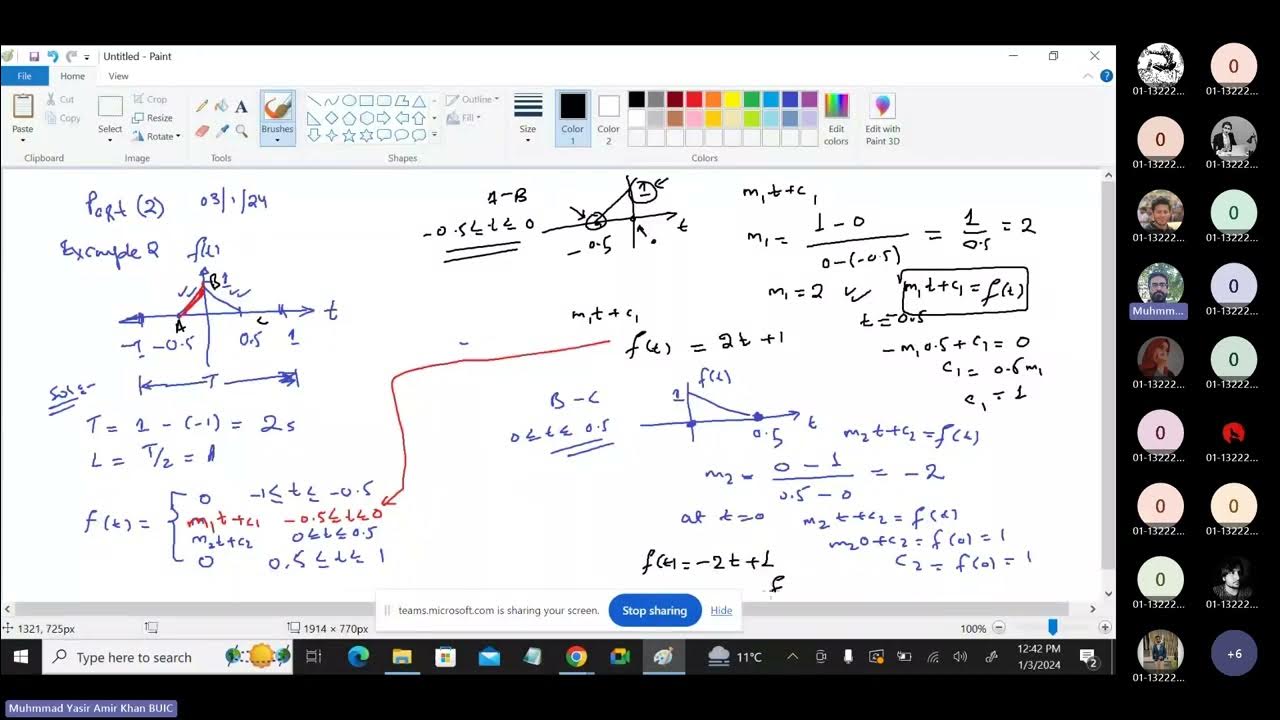 Untitled - Paint
File
Home
View
Paste
Cut
Copy
Clipboard
Select
Crop
Resize
Rotate
Image
Tools
Brushes
Outline
Fill
Shapes
Size
Color 1
Color 2
Edit colors
Edit with Paint 3D
Colors
Part (2) 03/1/24
Example 2
f(t)
B 1
A
C
t
-1 -0.5 0.5 1
T
Sol:-
T = 1 - (-1) = 2s
L = T/2 = 1
f(t) =
0 -1 ≤ t ≤ -0.5
m₁t+c₁ -0.5 ≤ t ≤ 0
m₂t+c₂ 0 ≤ t ≤ 0.5
0 0.5 ≤ t ≤ 1
A-B
-0.5 ≤ t ≤ 0
1
-0.5
t
m₁t+c₁
m₁ = 1-0 / 0-(-0.5) = 1/0.5 = 2
m₁ = 2
m₁t+c₁ = f(t)
t = -0.5
-m₁0.5+c₁ = 0
c₁ = 0.5m₁
c₁ = 1
m₁t+c₁
f(t) = 2t+1
B-C
0 ≤ t ≤ 0.5
f(t)
1
0.5
t
m₂t+c₂=f(t)
m₂ = 0-1 / 0.5-0 = -2
at t=0
m₂t+c₂ = f(t)
m₂0+c₂ = f(0) = 1
c₂ = f(0) = 1
f(t) = -2t+1
f
teams.microsoft.com is sharing your screen.
Stop sharing
Hide
1321, 725px
1914 × 770px
100%
Type here to search
11°C
12:42 PM
1/3/2024
2
Muhmmad Yasir Amir Khan BUIC
01-13222...
0
01-13222...
0
01-13222...
01-13222...
01-13222...
0
01-13222...
Muhmm...
0
01-13222...
01-13222...
0
01-13222...
0
01-13222...
01-13222...
0
01-13222...
0
01-13222...
0
01-13222...
01-13222...
01-13222...
+6